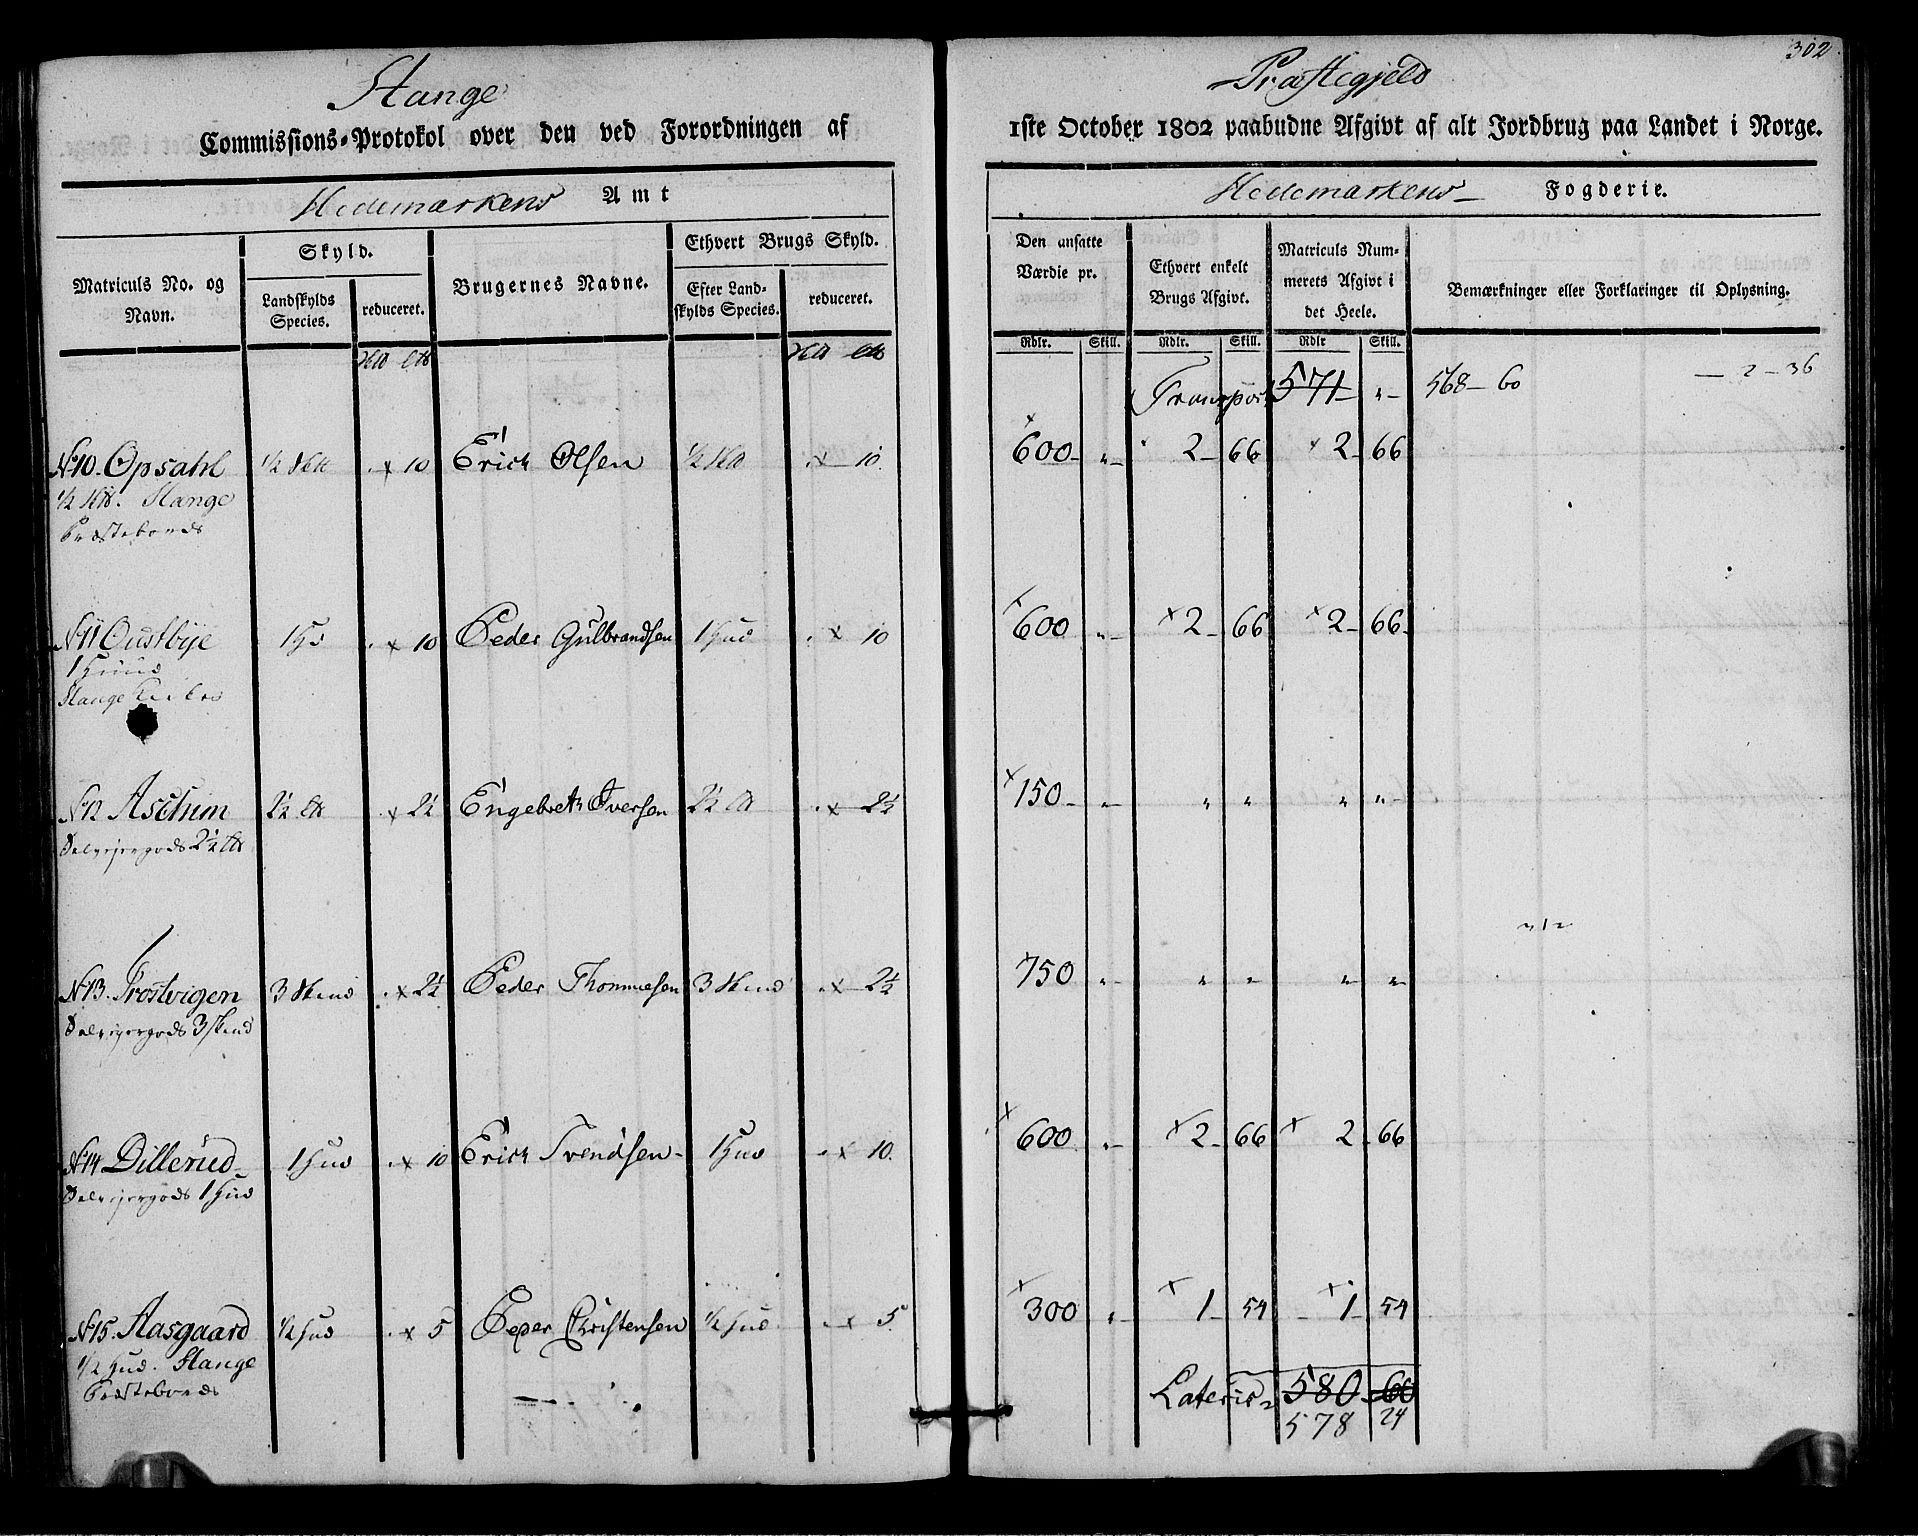 302
Stange Præstegjeld
Commissions-Protokol over den ved Forordningen af 1ste October 1802 paabudne Afgivt af alt Jordbrug paa Landet i Norge.
Hedemarkens Amt Hedemarkens Fogderie.
Matriculs No. og Navn.
Skyld.
Landskylds Species.
reduceret.
Brugernes Navne.
Ethvert Brugs Skyld.
Efter Landskylds Species.
reduceret.
Den ansatte Værdie pr.
Ethvert enkelt Brugs Afgivt.
Matriculs Nummerets Afgivt i det Heele.
Bemærkninger eller Forklaringer til Oplysning.
Rdlr. Skill. Rdlr. Skill. Rdlr Skill.
Transport 571 „ 568 - 60 — 2 - 36
No 10. Opsahl ½ x 10 Erich Olsen ½ x 10 x 600 „ 2 66 x 2 66
½ Stange
Præsteboeds
No 11 Oustbye 1 x 10 Peder Gulbrandsen 1 Hud x 10 x 600 „ x 2 66 x 2 66
1 Huud
Stange
No 12 Aschim 2½ x 2½ Engebreth Iversen 2½ x 2½ x 150 „ „ „ „ „
2½
No 13. Frostvigen 3 Skind x 2½ Peder Thommesen 3 Skind x 2½ 750 „ „ „ „ „
3 Skind
No 14 Dillerud 1 Hud x 10 Erich Svendsen 1 Hud x 10 x 600 „ x 2 66 x 2 66
1 Hud
No 15. Aasgaard ½ Hud x 5 Peder Christensen ½ Hud x 5 x 300 „ x 1 54 x 1 54
½ Hud. Stange
Præsteboeds
Lateris 580 60
578 24